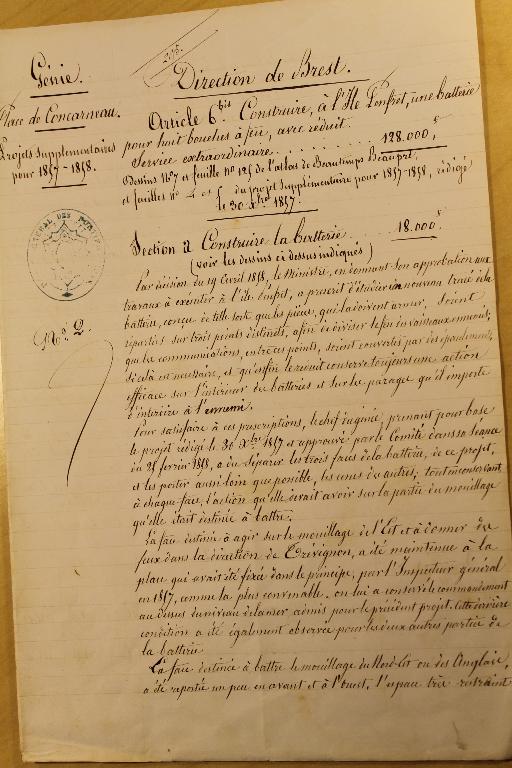 205.
Génie.
Direction de Brest.
Place de Concarneau.
Projets supplémentaires
pour 1857-1858.
Article 6 bis Construire, à l'Île Penfret, une batterie
pour huit bouches à feu, avec réduit.
Service extraordinaire. . . . . . . . . . . 128.000f
Dessins No 7 et feuille no 125 de l'atlas de Beautemps Beaupré,
et feuilles no 4 et 5 du projet supplémentaire pour 1857-1858, rédigé
le 30 Xbre 1857.
Section a Construire la batterie . . . . 18.000f
(voir les dessins ci dessus indiqués)
No 2.
Par décision du 19 avril 1858, le Ministre, en donnant son approbation aux
travaux à exécuter à l'île Penfret, a prescrit d'étudier un nouveau tracé de la
batterie, conçue de telle sorte que les pièces, qui la doivent armer, soient
réparties sur trois points distincts, afin de diviser le feu des vaisseaux ennemis;
que les communications, entre ces points, soient couvertes par des épaulements,
si cela est nécessaire, et qu'enfin le réduit conserve toujours une action
efficace sur l'intérieur des batteries et sur les parages qu'il importe
d'interdire à l'ennemi.
Pour satisfaire à ces prescriptions, le chef du génie, prenant pour base
le projet rédigé le 30 Xbre 1857 et approuvé par le Comité dans sa séance
du 25 février 1858, a dû séparer les trois faces de la batterie, de ce projet,
et les porter aussi loin que possible, les unes des autres; tout en conservant,
à chaque face, l'action qu'elle devait avoir sur la partie du mouillage
qu'elle était destinée à battre.
La face destinée à agir sur le mouillage de l'Est et à donner des
feux dans la direction de Trévignon, a été maintenue à la
place qui avait été fixée dans le principe, par l'Inspecteur général
en 1857, comme la plus convenable. on lui a conservé le commandement
au dessus du niveau de la mer admis pour le précédent projet. Cette dernière
condition a été également observée pour les deux autres parties de
la batterie.
La face destinée à battre le mouillage du Nord-Est ou des Anglais,
a été reportée un peu en avant et à l'ouest. l'espace très restreint